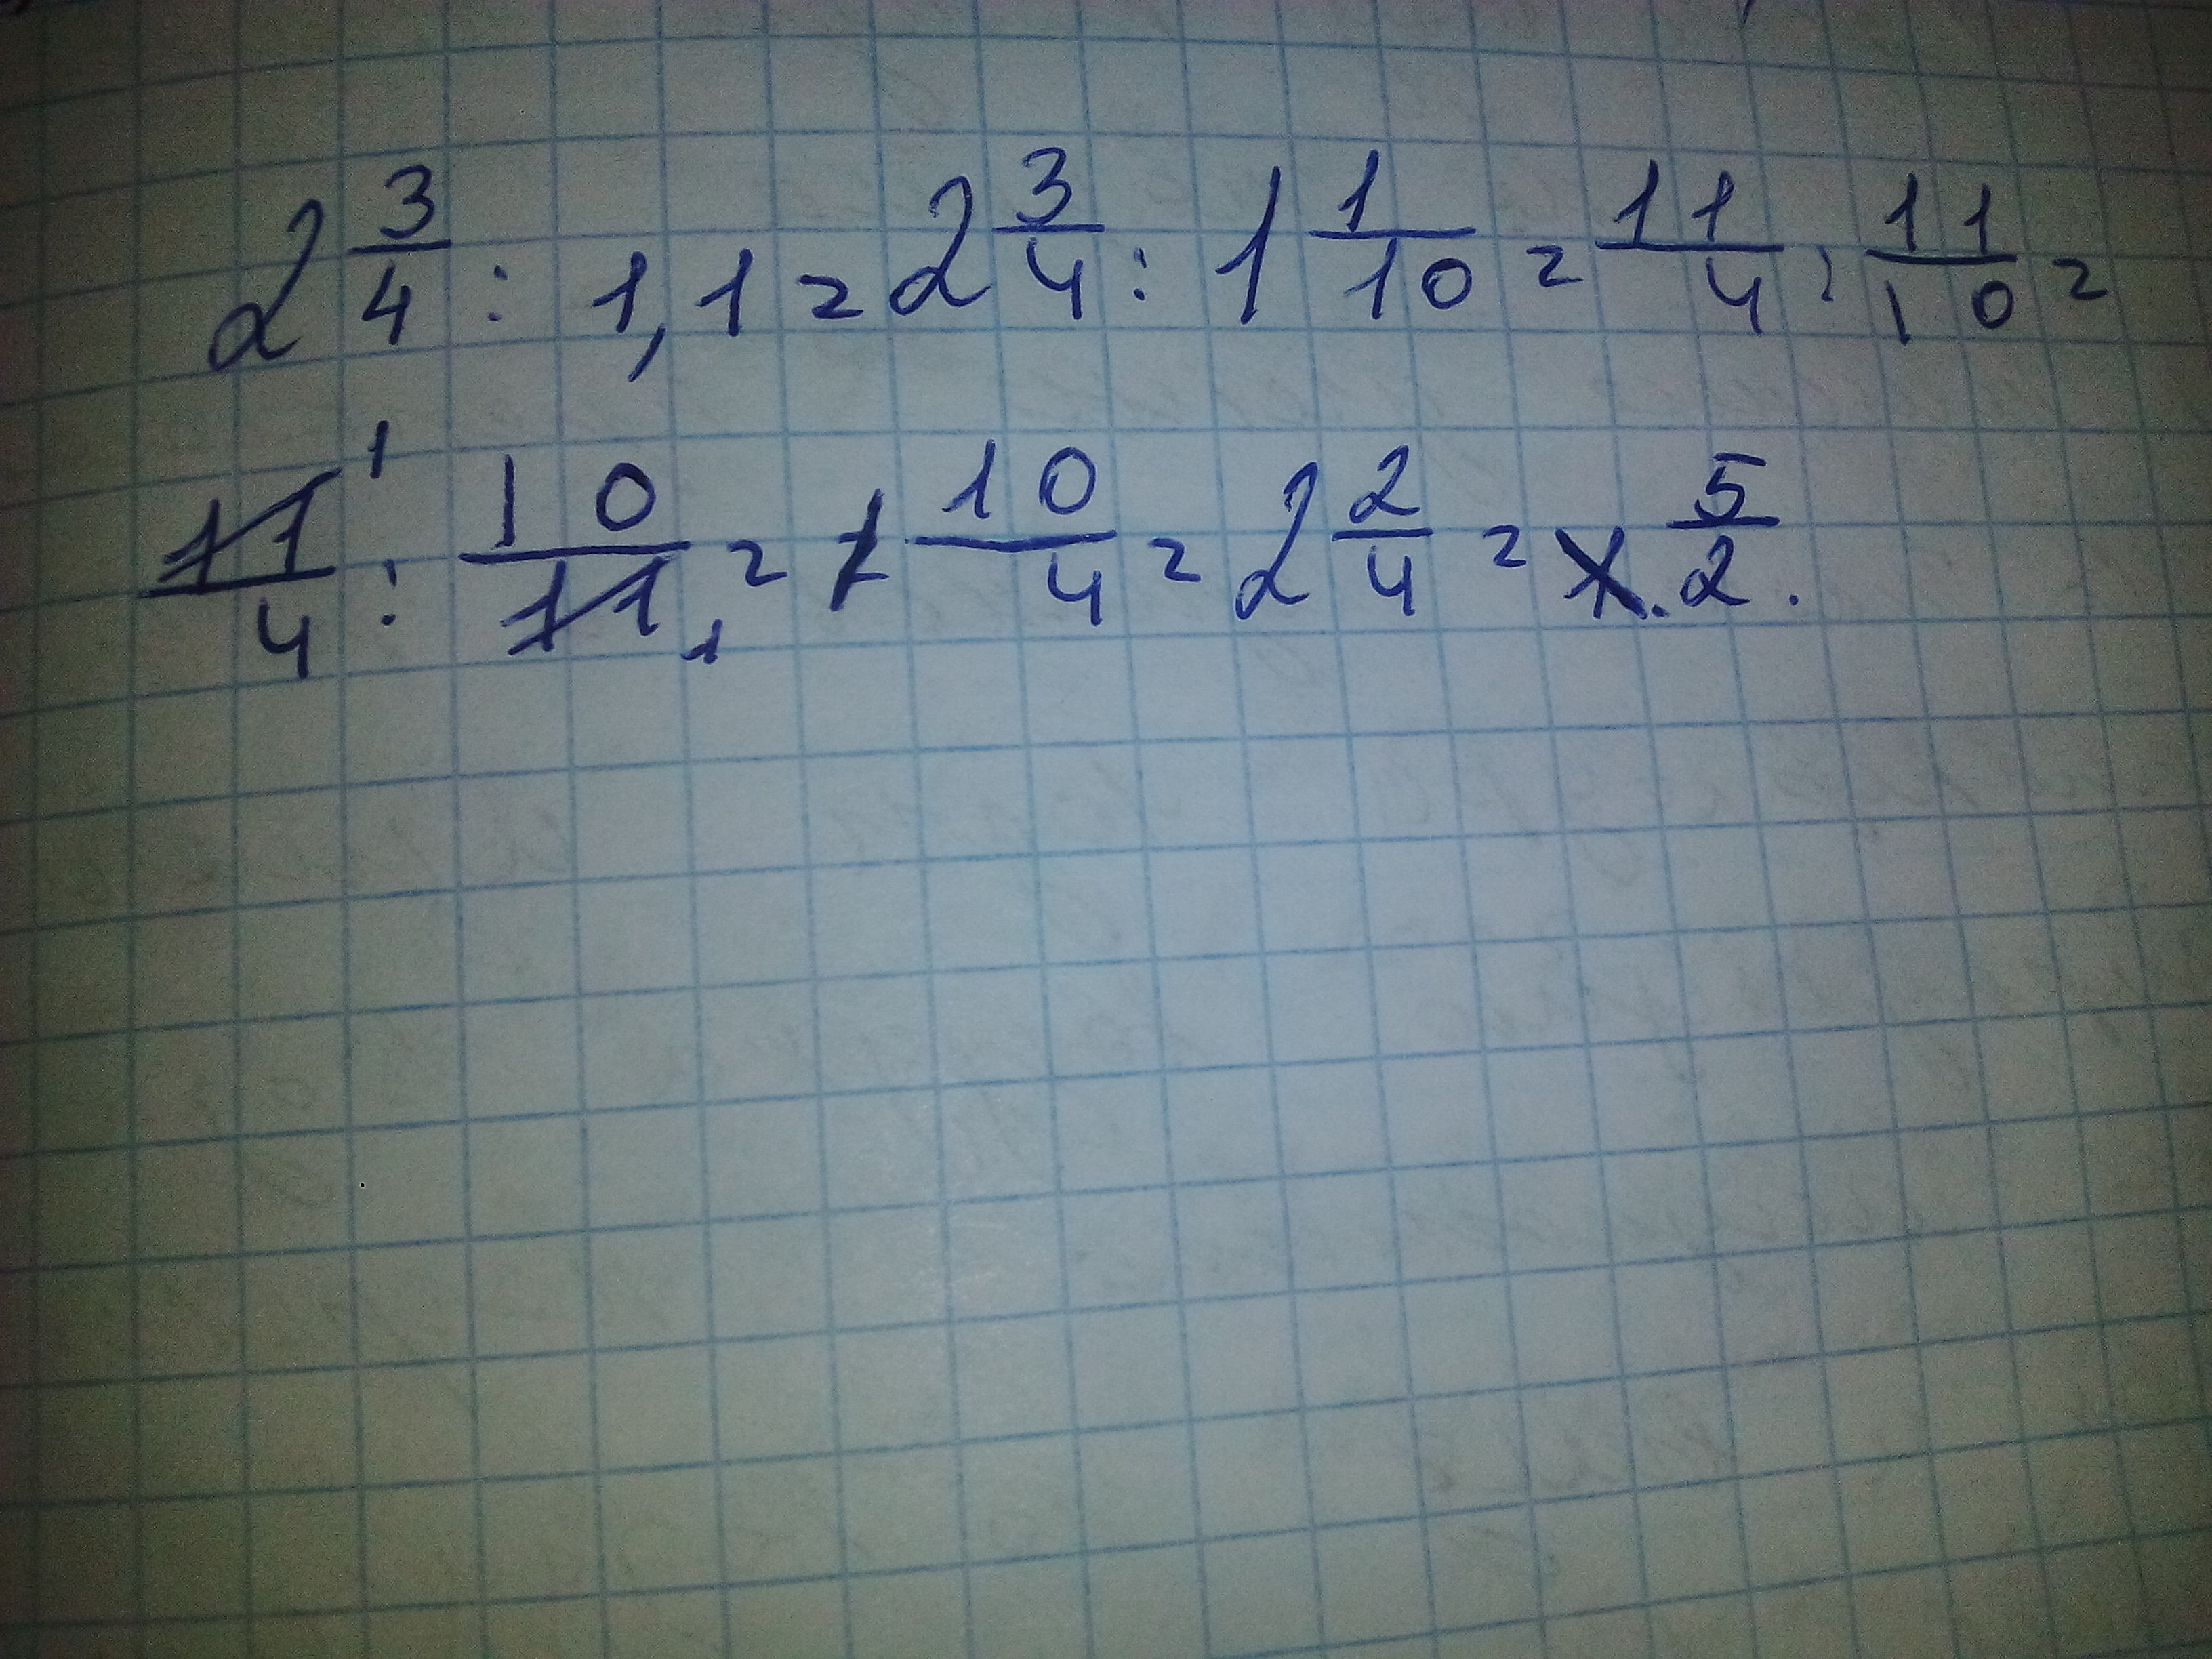 2 3/4 : 1,1 = 2 3/4 : 1 1/10 = 11/4 : 11/10 =
11/4 1 : 10/11 1 = 10/4 = 2 2/4 = 5/2.